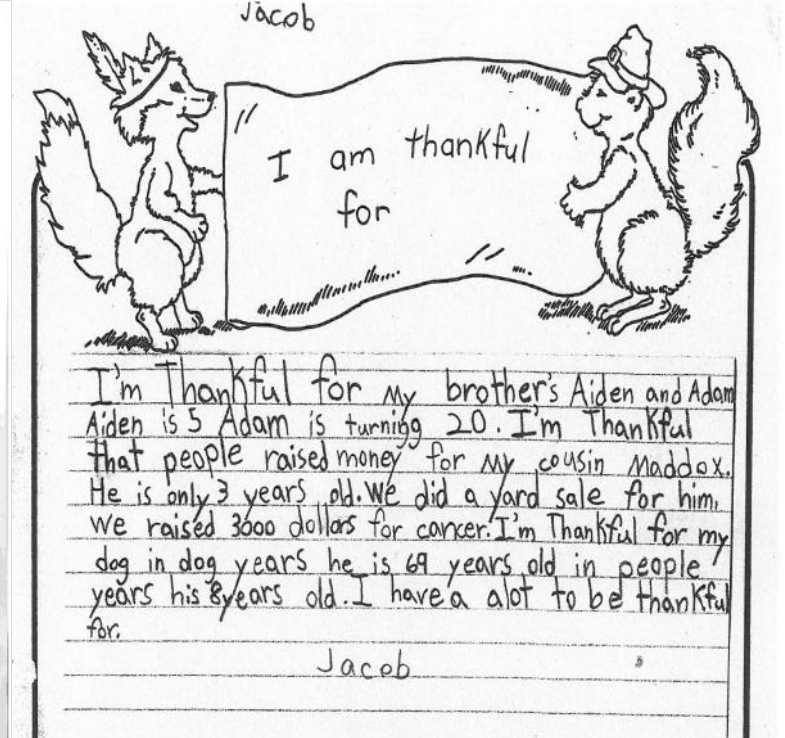 Jacob
I am thankful
for
I'm Thankful for my brother's Aiden and Adam
Aiden is 5 Adam is turning 20. I'm Thankful
that people raised money for my cousin Maddox.
He is only 3 years old. We did a yard sale for him.
we raised 3000 dollars for cancer. I'm Thankful for my
dog in dog years he is 69 years old in people
years his 8years old. I have a alot to be thankful
for.
Jacob